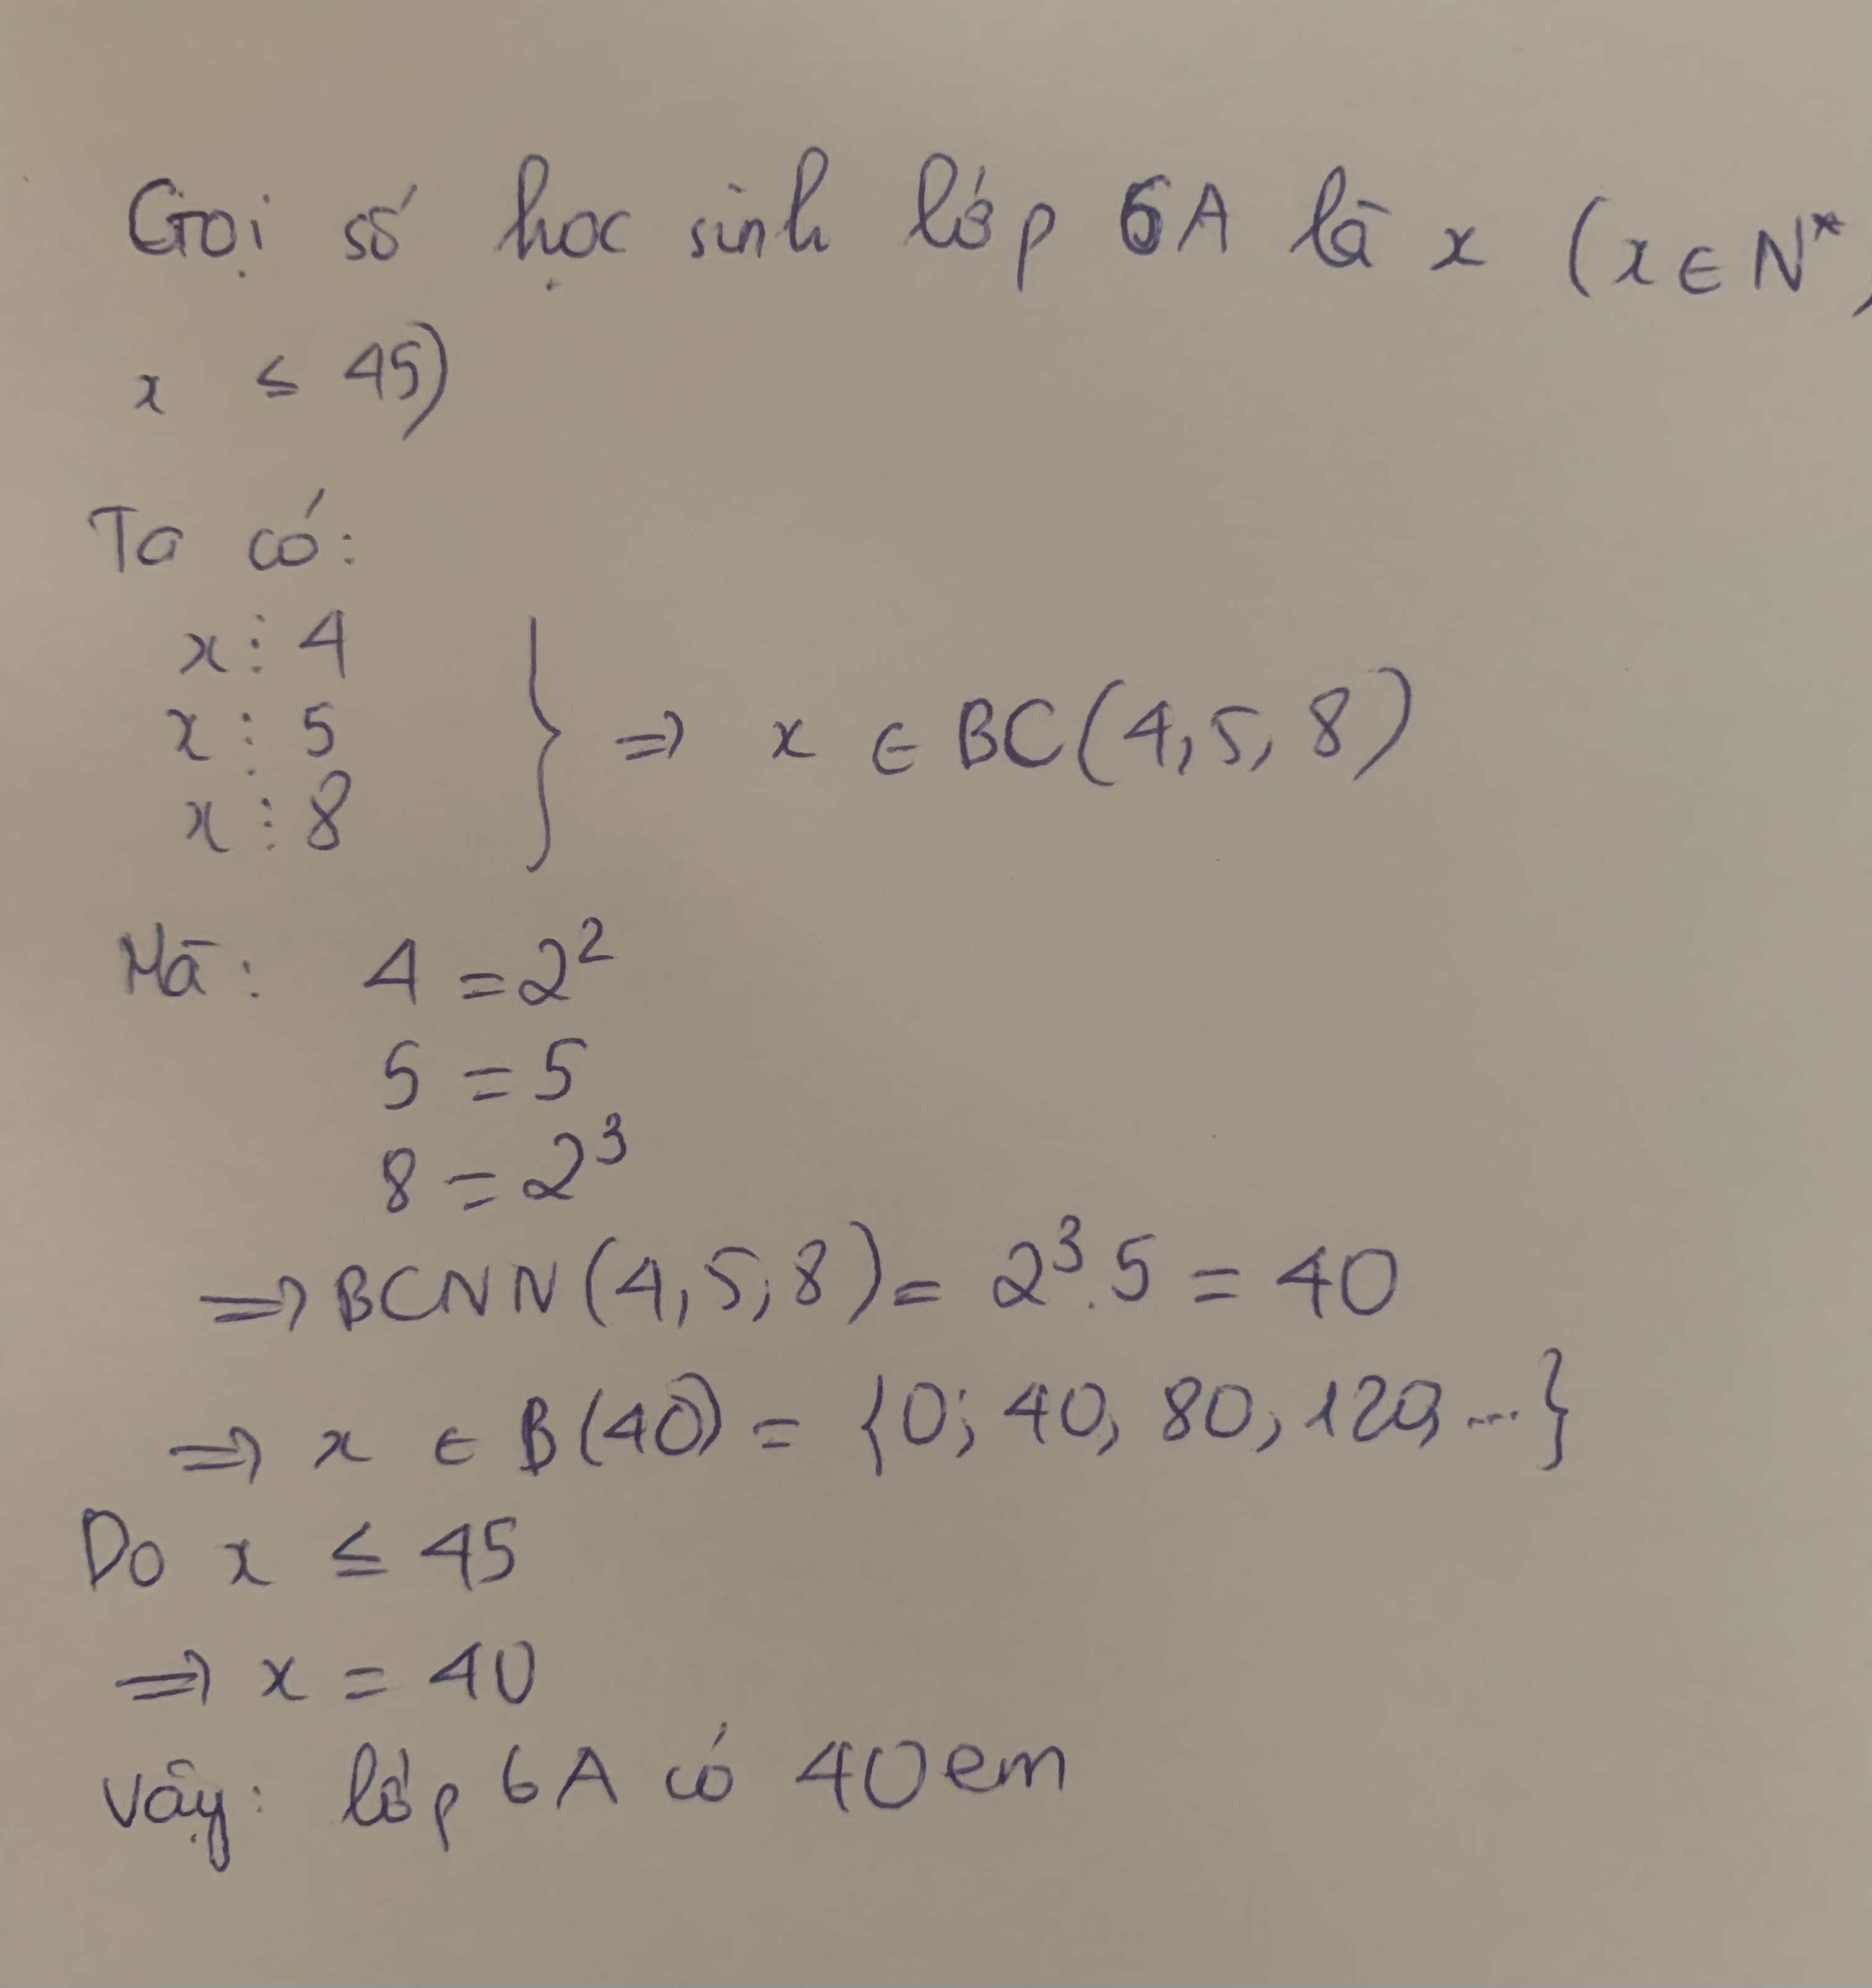 Gọi số học sinh lớp 6A là x (x ∈ N*,
x ≤ 45)
Ta có:
x ⋮ 4
x ⋮ 5
x ⋮ 8
} ⇒ x ∈ BC(4, 5, 8)
Mà: 4 = 2²
5 = 5
8 = 2³
⇒ BCNN(4, 5, 8) = 2³.5 = 40
⇒ x ∈ B(40) = {0; 40, 80, 120, ...}
Do x ≤ 45
⇒ x = 40
Vậy: lớp 6A có 40 em